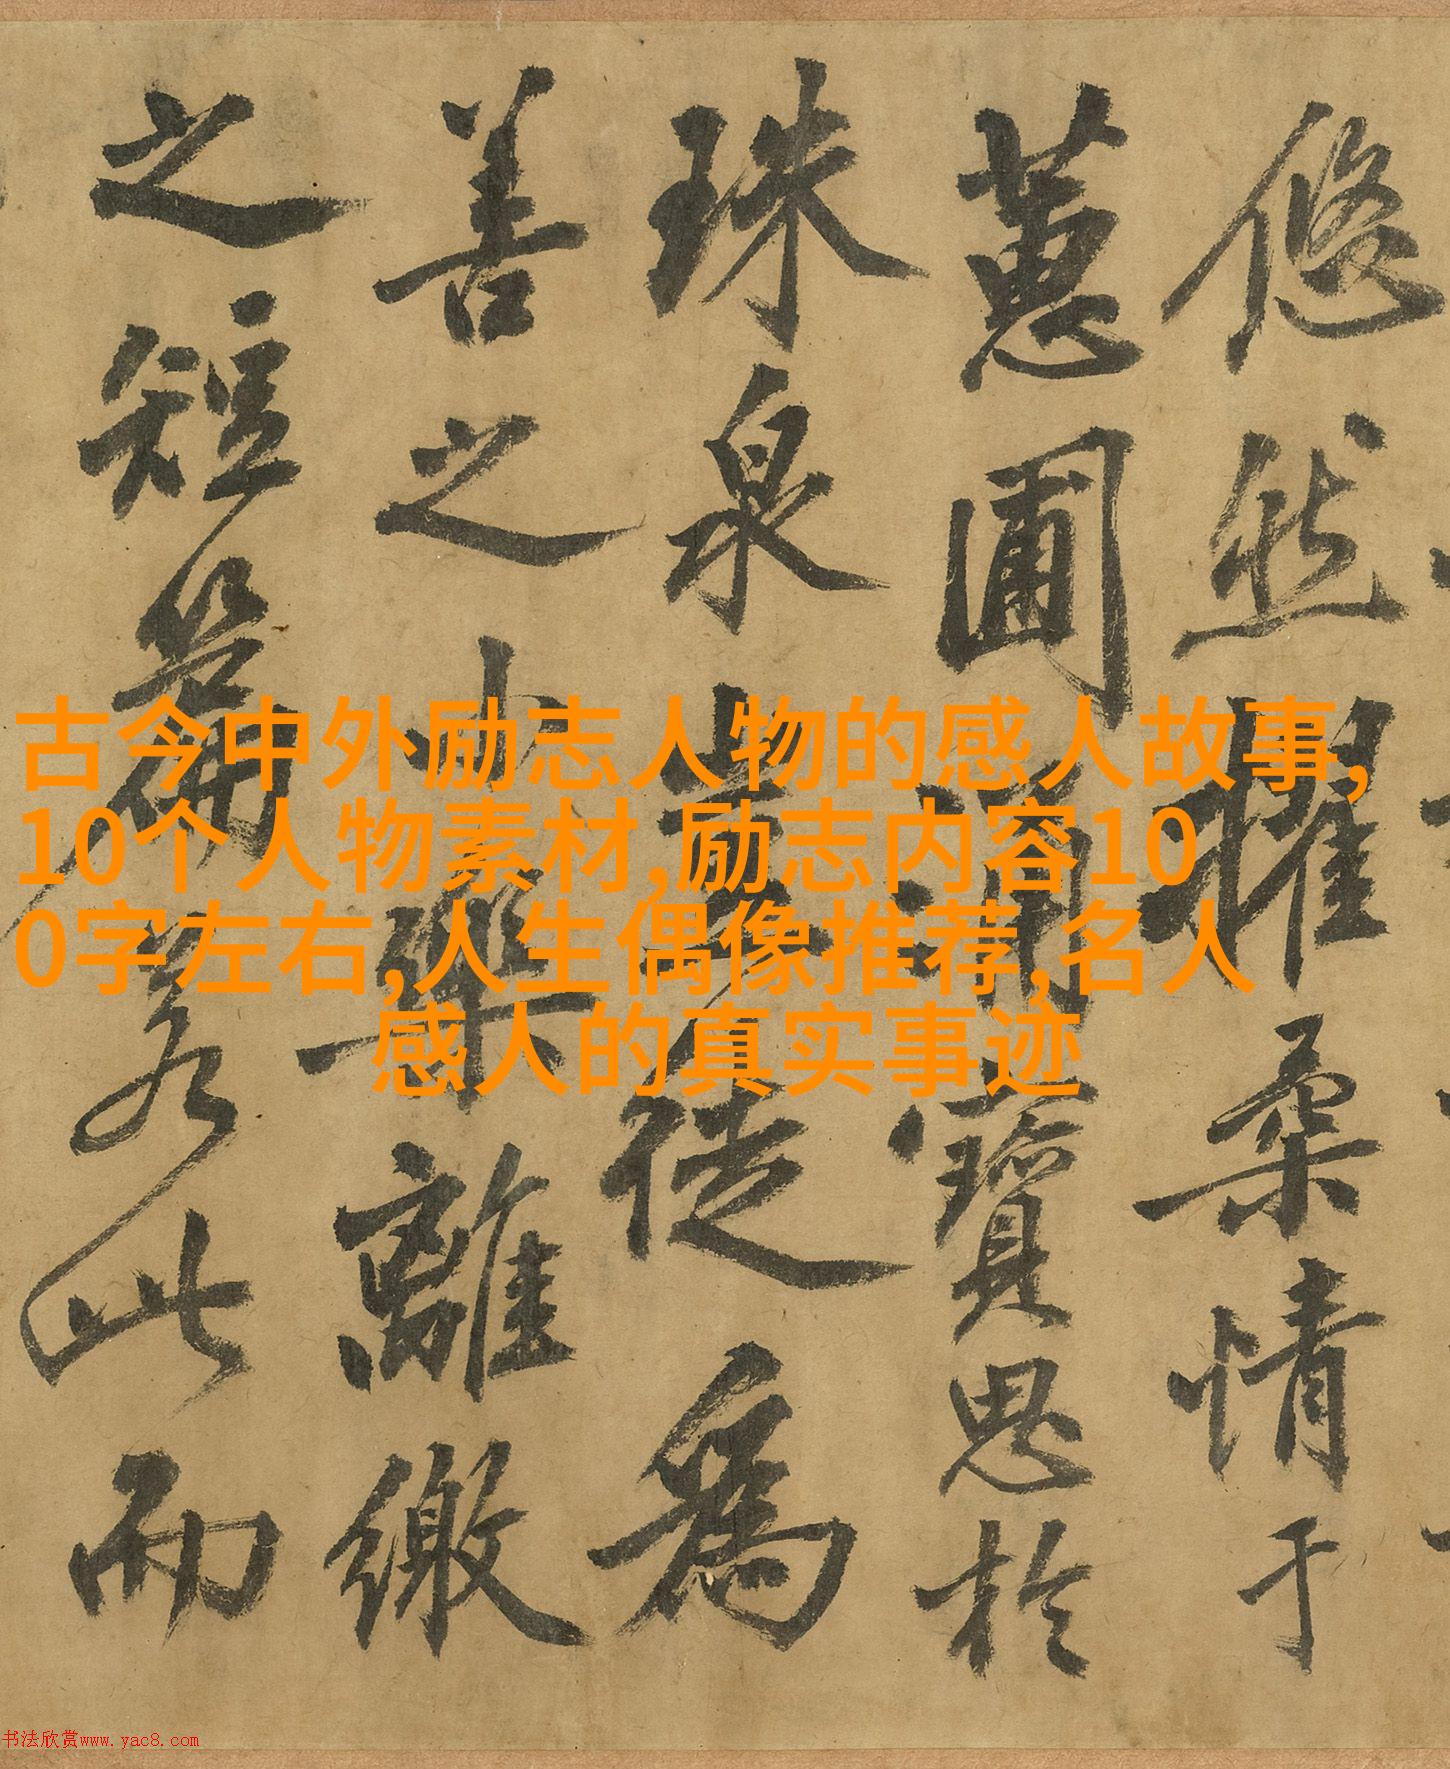 古今中外励志人物的感人故事,
10个人物素材,励志内容10
0字左右,人生偶像推荐,名人
感人的真实事迹
悠然擢桑情于
蕙圃寶思於
珠泉徒為
善之小樂離繳
之短若此而
书法欣赏www.yac8.com